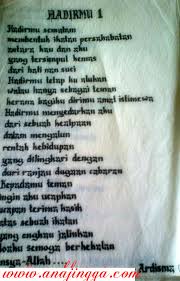 HADIRMU 1
Hadirmu semalam
membentuk ikatan persahabatan
antara kau dan aku
yang tersimpul kemas
dari hati nan suci
Hadirmu tetap ku alukan
walau hanya sebagai teman
kerana bagiku dirimu amat istimewa
Hadirmu menyedarkan aku
dari sebuah kealpaan
dalam mengalun
rentak kehidupan
yang dilingkari dengan
dari ranjau dugaan cabaran
Kepadamu teman
ingin aku
ucapan terima kasih
atas sebuah
yang engkau jalinkan
semoga berkekalan
Insya-Allah ....
Ardisma
www.anajingga.com